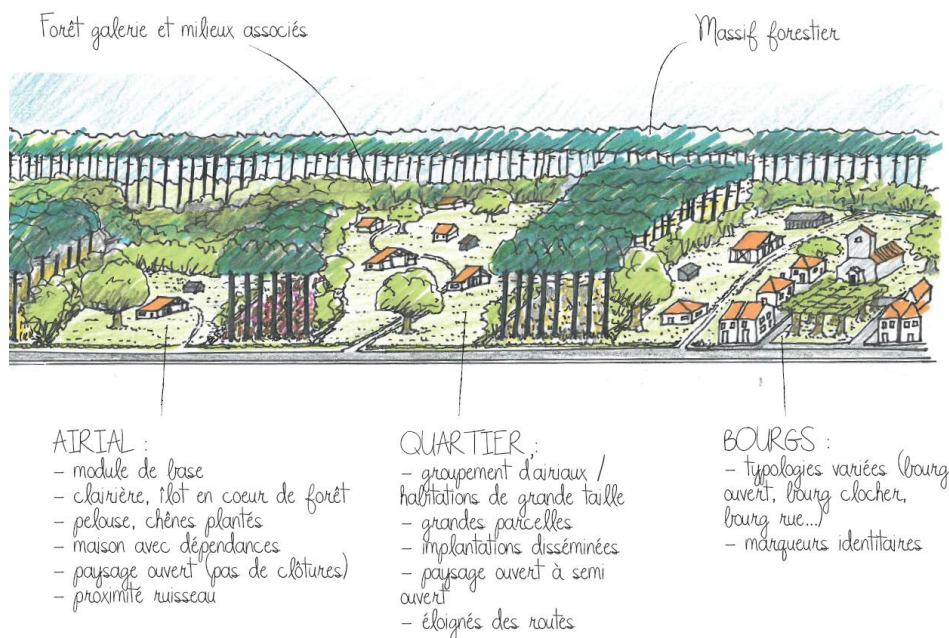 Forêt galerie et milieux associés
Massif forestier
AIRIAL :
- module de base
- clairière, îlot en coeur de forêt
- pelouse, chênes plantés
- maison avec dépendances
- paysage ouvert (pas de clôtures)
- proximité ruisseau
QUARTIER :
- groupement d'airiaux /
habitations de grande taille
- grandes parcelles
- implantations disséminées
- paysage ouvert à semi
ouvert
- éloignés des routes
BOURGS :
- typologies variées (bourg
ouvert, bourg clocher,
bourg rue...)
- marqueurs identitaires